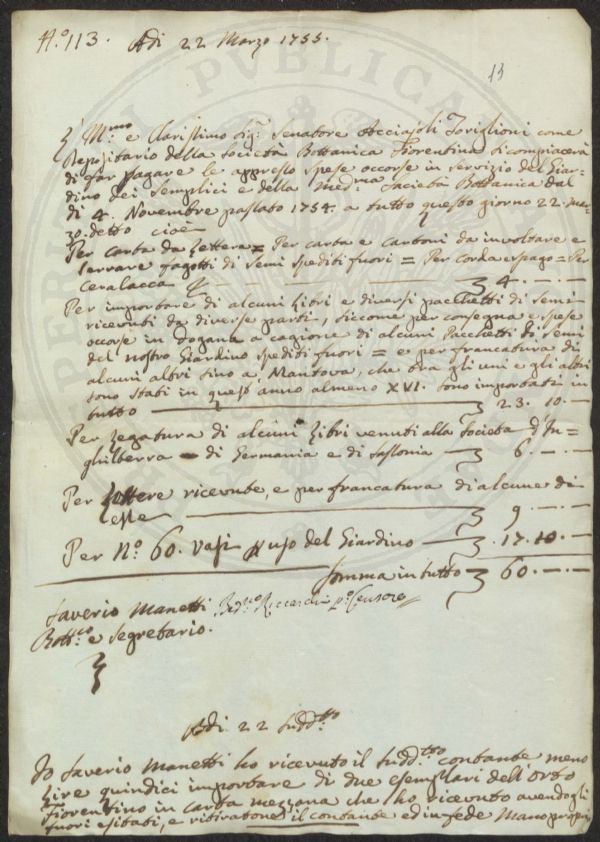 N.º 113. Adi 22 Marzo 1755.
13
Ill.mo e Clarissimo Sig.r Senatore Acciajoli Toriglioni come
Depositario della Società Bottanica Fiorentina si compiacerà
di far pagare le appresso spese occorse in servizio del Giar-
dino dei Semplici e della Med.ma Società Bottanica dal
dì 4. Novembre passato 1754. a tutto questo giorno 22. Mar-
zo detto cioè
Per carta da Lettera = Per carta e cartoni da involtare e
serrare fagotti di semi spediti fuori = Per corda e spago = Per
ceralacca 4. — —
Per importare di alcuni Libri e diversi pacchetti di semi
ricevuti da diverse parti, siccome per consegna e spese
occorse in Dogana a cagione di alcuni Pacchetti di semi
del nostro Giardino spediti fuori = e per francatura di
alcuni altri sino a Mantova, che tra gli uni e gli altri
sono stati in quest'anno almeno XVI. sono importati in
tutto 23. 10. —
Per Legatura di alcuni Libri venuti alla Società d'In=
ghilterra di Germania e di Sassonia 6. — —
Per Lettere ricevute e per francatura di alcune di
esse 9 — —
Per N.º 60. Vasi p uso del Giardino 17. 10. —
Somma in tutto 60. — —
Saverio Manetti Riccardi p.º Censore
Bott.co e Segretario.
Adi 22 Sudd.tto
Io Saverio Manetti ho ricevuto il sudd.tto contante meno
Lire quindici importare di due esemplari dell'Orto
Fiorentino in carta mezzana che ho ricevuto avendogli
fuori esitati, e ritiratone il contante ed in fede Mano propria